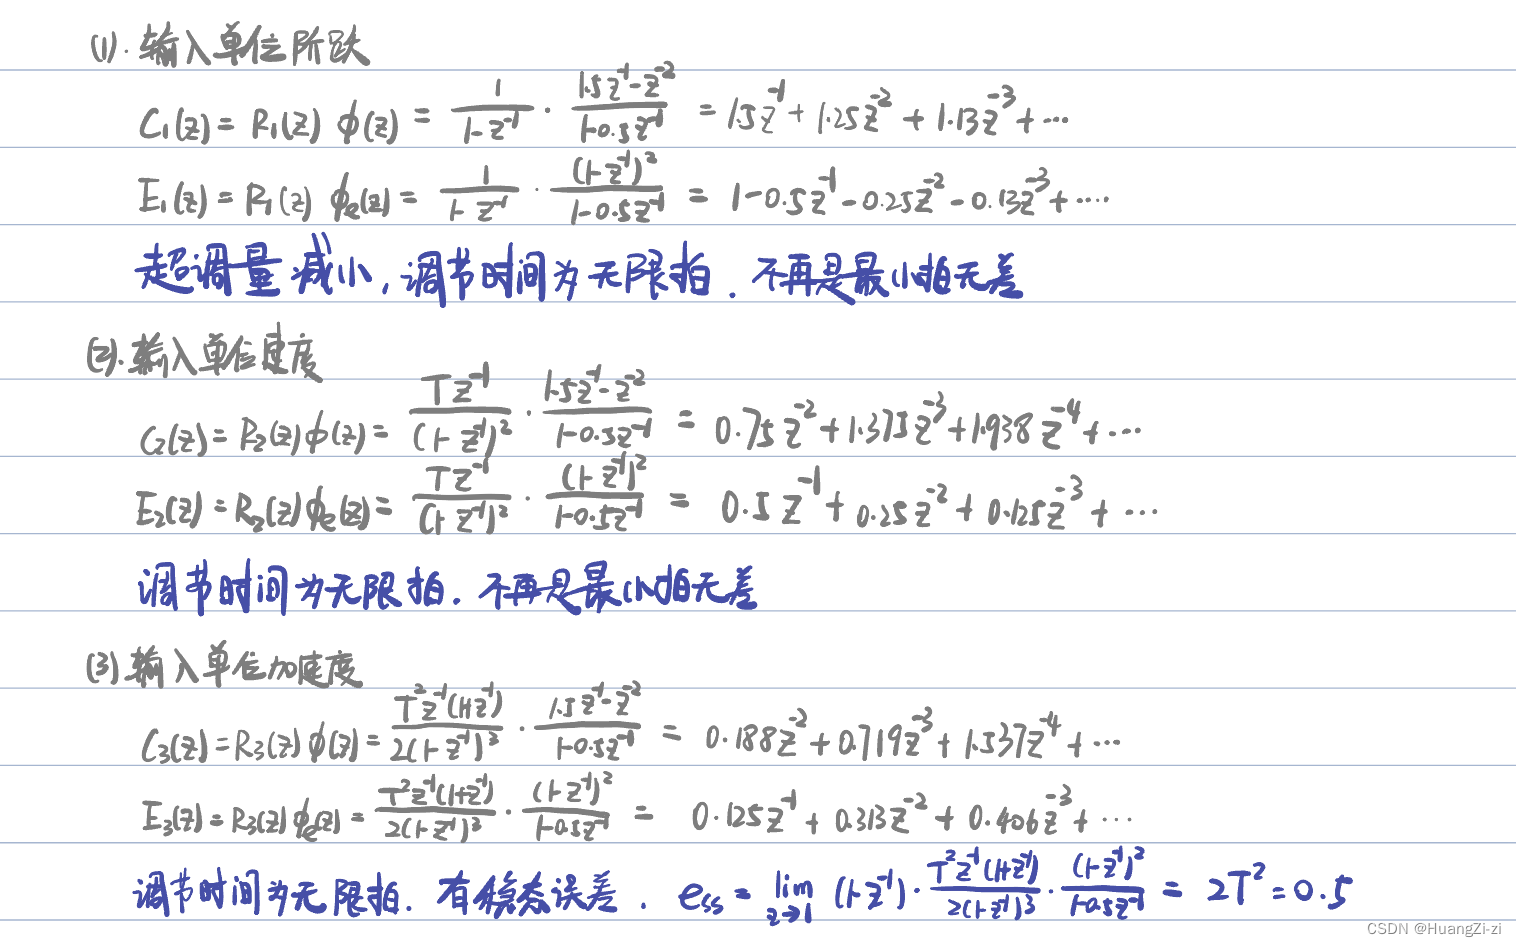 (1). 输入单位阶跃
C₁(z) = R₁(z) ϕ(z) = 1/(1-z⁻¹) · (1.5z⁻¹-z⁻²)/(1-0.5z⁻¹) = 1.5z⁻¹ + 1.25z⁻² + 1.13z⁻³ + ⋯
E₁(z) = R₁(z) ϕₑ(z) = 1/(1-z⁻¹) · (1-z⁻¹)²/(1-0.5z⁻¹) = 1-0.5z⁻¹-0.25z⁻²-0.13z⁻³+⋯
超调量减小, 调节时间为无限拍. 不再是最小拍无差
(2). 输入单位速度
C₂(z) = R₂(z) ϕ(z) = Tz⁻¹/(1-z⁻¹)² · (1.5z⁻¹-z⁻²)/(1-0.5z⁻¹) = 0.75z⁻² + 1.375z⁻³ + 1.938z⁻⁴ + ⋯
E₂(z) = R₂(z) ϕₑ(z) = Tz⁻¹/(1-z⁻¹)² · (1-z⁻¹)²/(1-0.5z⁻¹) = 0.5z⁻¹ + 0.25z⁻² + 0.125z⁻³ + ⋯
调节时间为无限拍. 不再是最小拍无差
(3) 输入单位加速度
C₃(z) = R₃(z) ϕ(z) = T²z⁻¹(1+z⁻¹)/2(1-z⁻¹)³ · (1.5z⁻¹-z⁻²)/(1-0.5z⁻¹) = 0.188z⁻² + 0.719z⁻³ + 1.537z⁻⁴ + ⋯
E₃(z) = R₃(z) ϕₑ(z) = T²z⁻¹(1+z⁻¹)/2(1-z⁻¹)³ · (1-z⁻¹)²/(1-0.5z⁻¹) = 0.125z⁻¹ + 0.313z⁻² + 0.406z⁻³ + ⋯
调节时间为无限拍. 有稳态误差. eₛₛ = lim z→1 (1-z⁻¹) · T²z⁻¹(1+z⁻¹)/2(1-z⁻¹)³ · (1-z⁻¹)²/(1-0.5z⁻¹) = 2T² = 0.5
CSDN @HuangZi-zi